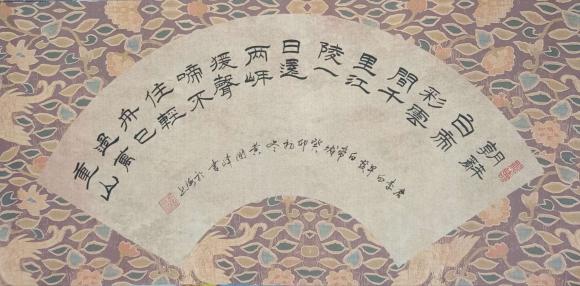 朝辭
白帝
彩雲
間千
里江
陵一
日還
兩岸
猨聲
啼不
住輕
舟已
過萬
重山
唐李白早發白帝城 癸卯初冬 黃國書於上海